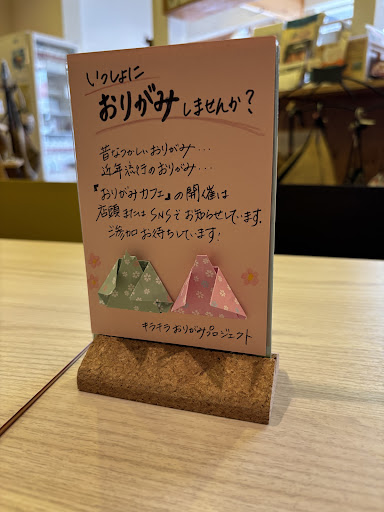 いっしょに
おりがみしませんか？
昔なつかしいおりがみ…
近年流行のおりがみ…
『おりがみカフェ』の開催は
店頭またはSNSでお知らせしています。
ご参加お待ちしています！
キラキラおりがみプロジェクト